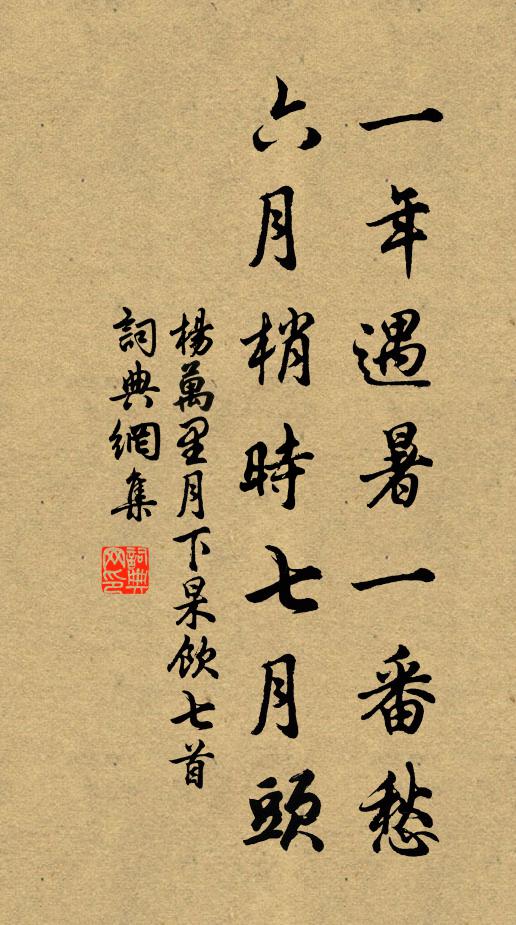 一年遇暑一番愁
六月梢時七月頭
楊萬里月下杲飲七首
詞典網集
詞典網印